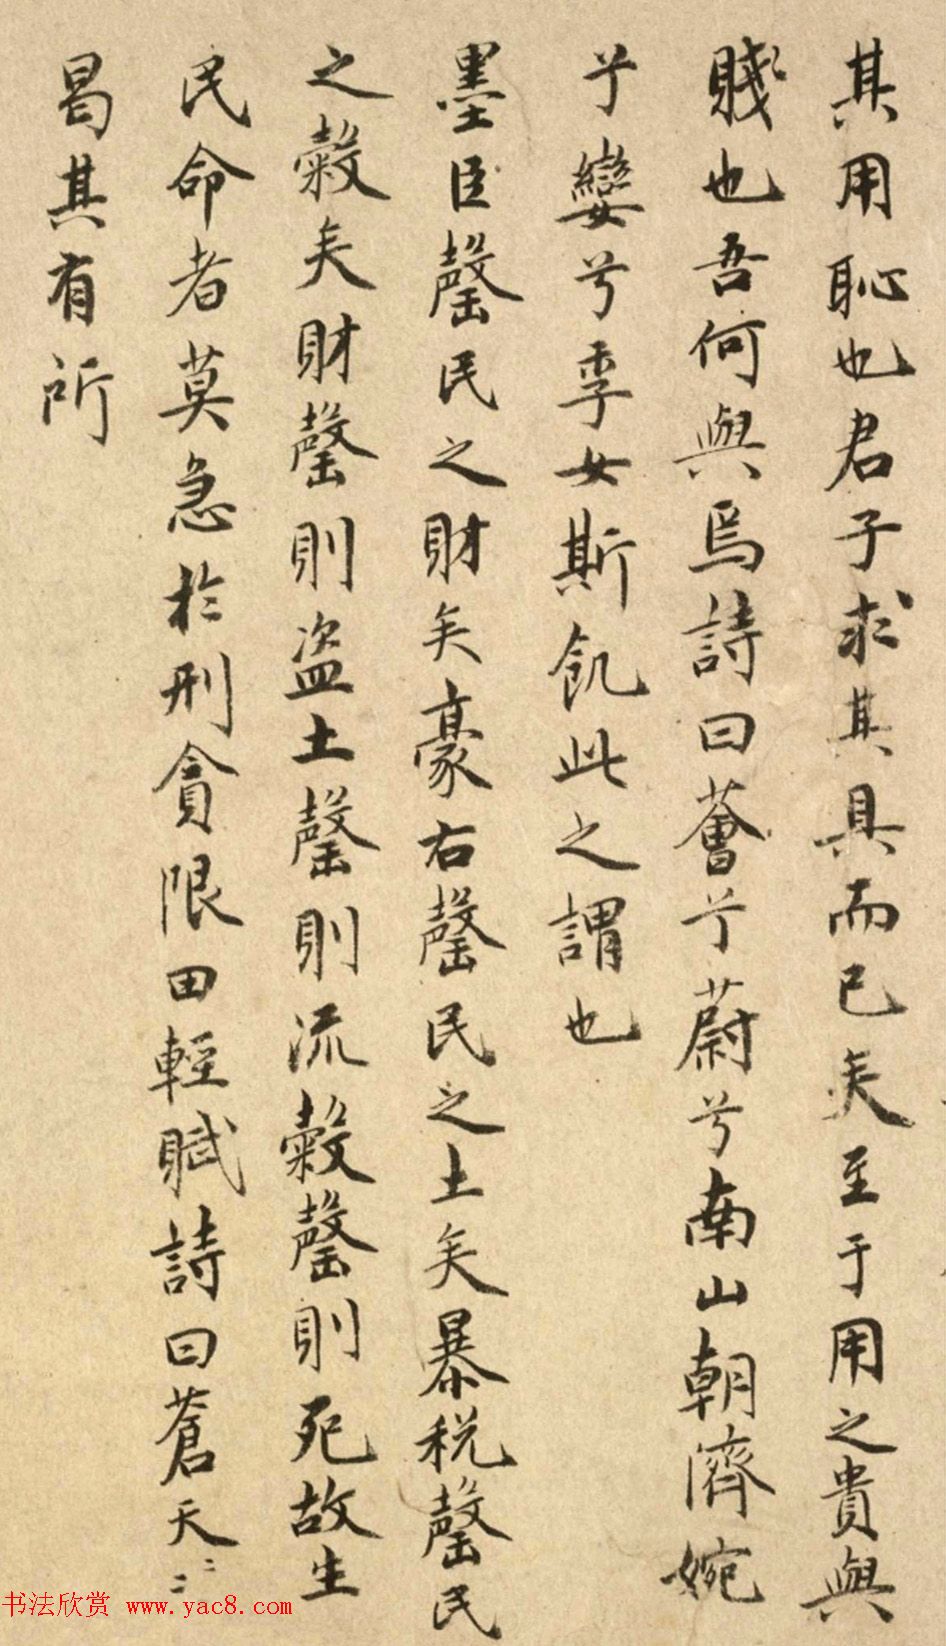 其用恥也君子求其具而已矣至于用之貴與
賤也吾何與焉詩曰薈兮蔚兮南山朝隮婉
兮孌兮季女斯飢此之謂也
墨臣罄民之財矣豪右罄民之土矣暴税罄民
之穀矣財罄則盗土罄則流穀罄則死故生
民命者莫急於刑貪限田輕賦詩曰蒼天〻〻
曷其有所
书法欣赏 www.yac8.com